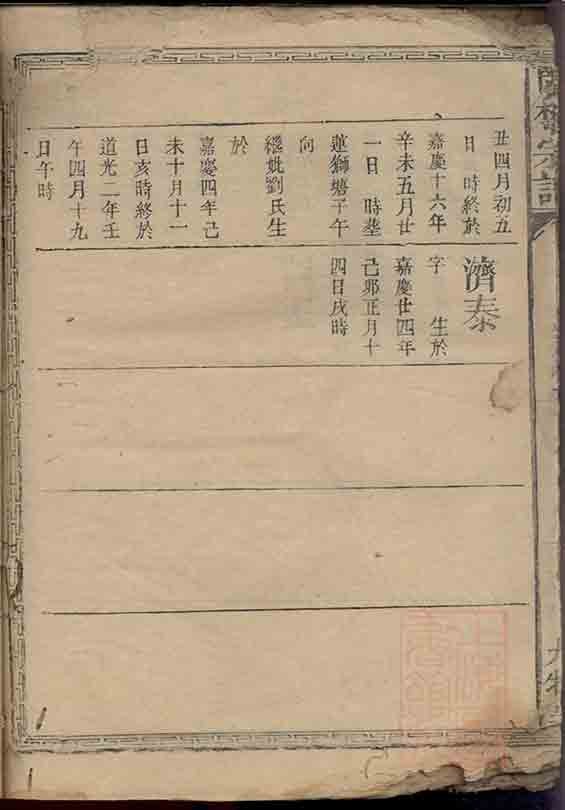 丑四月初五
日　時終於
嘉慶十六年
辛未五月廿
一日　時塟
蓮獅塘子午
向
繼妣劉氏生
於
嘉慶四年己
未十月十一
日亥時終於
道光二年壬
午四月十九
日午時
濟泰
字　　生於
嘉慶廿四年
己卯正月十
四日戌時